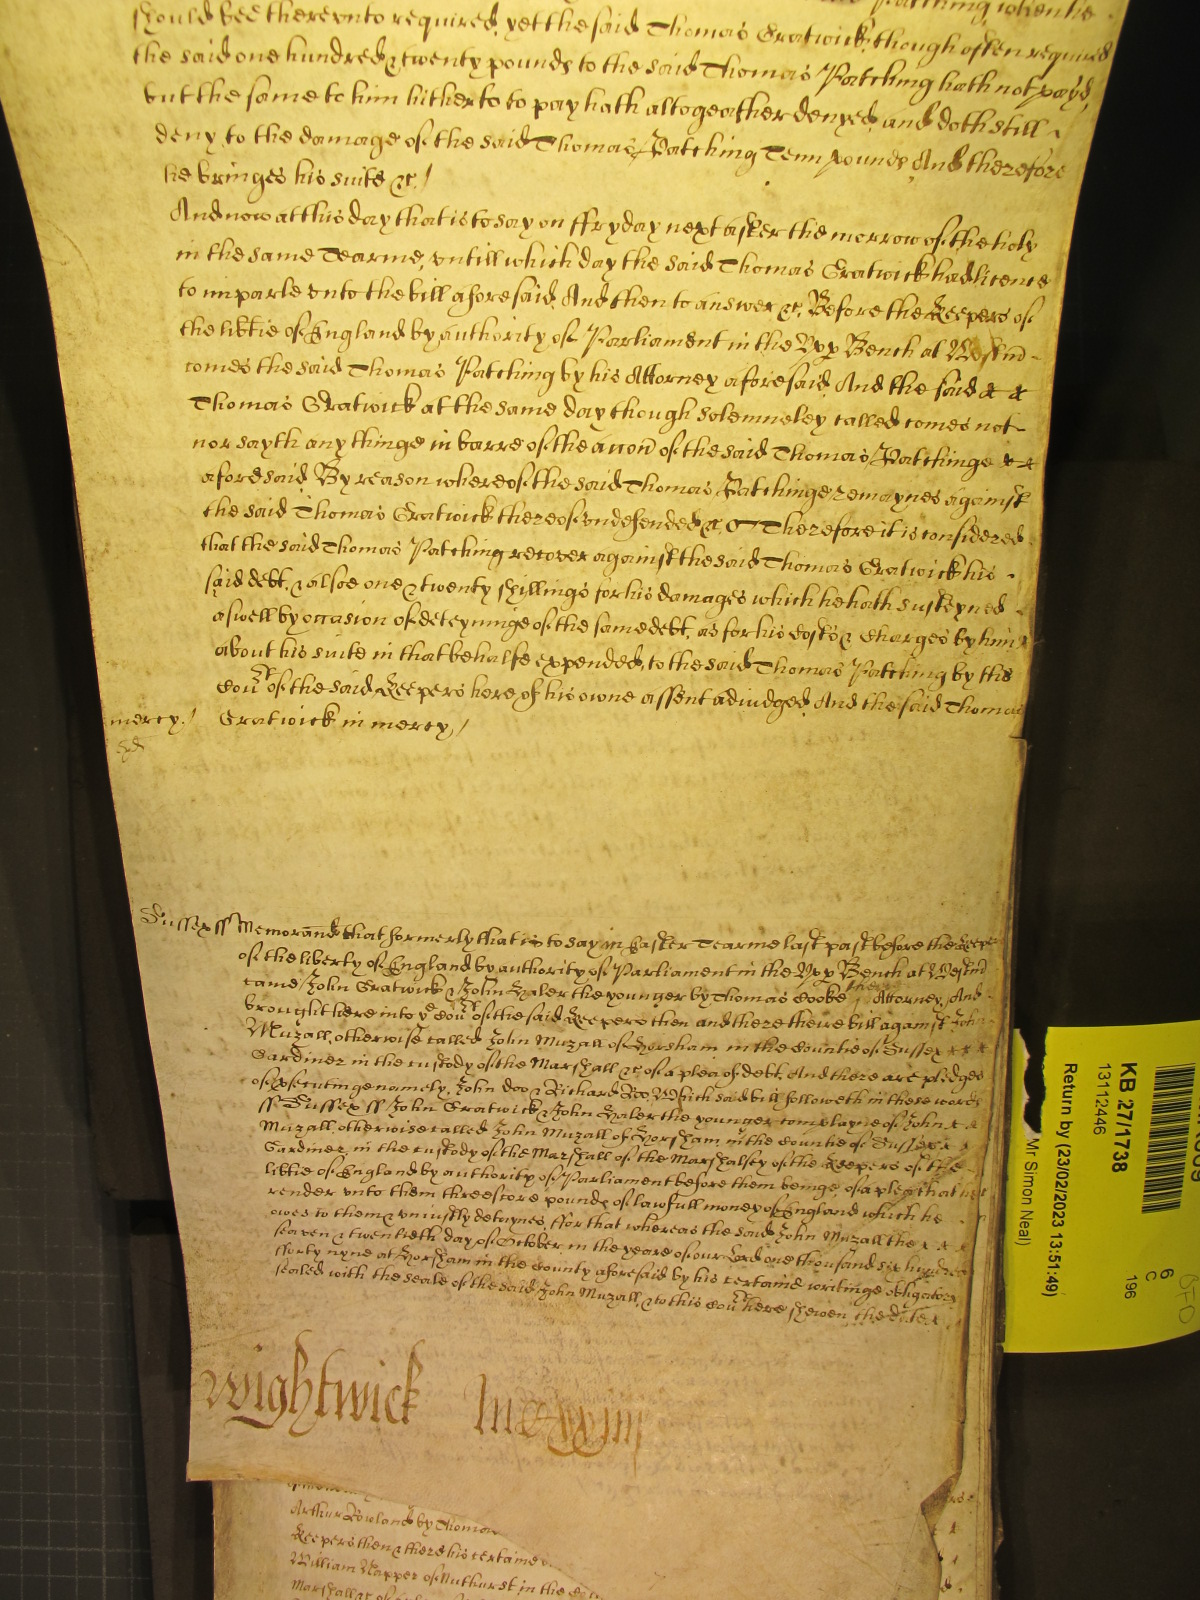 Patching when he
should bee therevnto required, yet the said Thomas Gratwick though often required
the said one hundred & twenty pounds to the said Thomas Patching hath not payd,
but the same to him hitherto to pay hath altogeather denyed, and doth still
deny, to the damage of the said Thomas Patching Tenn pounds And therefore
he bringes his suite &c /
And now at this day that is to say on ffryday next after the morrow of the holy
in the same Tearme, vntill which day the said Thomas Gratwick had licence
to imparle vnto the bill aforesaid, And then to answer &c, Before the Keepers of
the libtie of England by authority of Parliament in the Vpp Bench at Westm
comes the said Thomas Patching by his Attorney aforesaid And the said
Thomas Gratwick at the same day though solemneley called comes not
nor sayth any thinge in barre of the accon of the said Thomas Patchinge
aforesaid By reason whereof the said Thomas Patchinge remaynes against
the said Thomas Gratwick thereof vndefended &c, Therefore it is considered
that the said Thomas Patching recover against the said Thomas Gratwick his
said debt, & alsoe one & twenty shillings for his damages which he hath susteyned
aswell by occasion of deteyninge of the same debt, as for his costs & charges by him
about his suite in that behalfe expended, to the said Thomas Patching by the
Court of the said Keepers here of his owne assent adiudged And the said Thomas
mercy / Gratwick in mercy /
Sussex ss Memorand that formerly that is to say in Easter Tearme last past before the Keepers
of the liberty of England by authority of Parliament in the Vpp Bench at Westm
came John Gratwick & John Haler the younger by Thomas Cooke their Attorney, And
brought here into ye Court of the said Keepers then and there theire bill against John
Muzall, otherwise called John Muzall of Horsham in the Countie of Sussex
Gardiner in the custody of the Marshall &c of a plea of debt, And there are pledges
of psecutinge namely, John doo & Richard Roo, Which said bill followeth in these words
ss Sussex ss John Gratwick & John Haler the younger complayne of John
Muzall, otherwise called John Muzall of Horsham in the Countie of Sussex
Gardiner, in the custody of the Marshall of the Marshalsey of the Keepers of the
libtie of England by authority of Parliament before them beinge, of a plea that he
render vnto them threescore pounds of lawfull money of England which he
owes to them & vniustly detaynes, ffor that whereas the said John Muzall the
seaven & twentieth day of October in the yeare of our Lord one thousand six hundred
fforty nyne at Horsham in the County aforesaid by his certaine writinge obligatory
sealed with the seale of the said John Muzall, & to this Court here shewen, the date
Wightwick
Arthur Rowland by Thomas
Keepers then & there his certaine
William Napper of Nuthurst in the Cou
Marshall &c of
KB 27/1738
13112446
Return by (23/02/2023 13:51:49)
Mr Simon Neal)
6
C
196